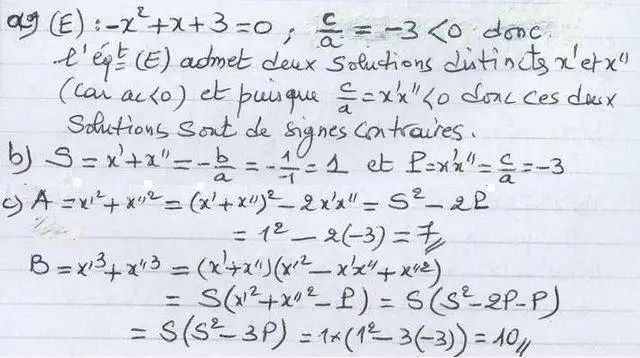 a) (E) : -x² + x + 3 = 0 ; c/a = -3 < 0 donc
l'éqt (E) admet deux solutions distincts x' et x''
(car ac<0) et puisque c/a = x'x'' < 0 donc ces deux
solutions sont de signes contraires.
b) S = x' + x'' = -b/a = -1/-1 = 1 et P = x'x'' = c/a = -3
c) A = x'² + x''² = (x' + x'')² - 2x'x'' = S² - 2P
= 1² - 2(-3) = 7
B = x'³ + x''³ = (x' + x'')(x'² - x'x'' + x''²)
= S(x'² + x''² - P) = S(S² - 2P - P)
= S(S² - 3P) = 1×(1² - 3(-3)) = 10